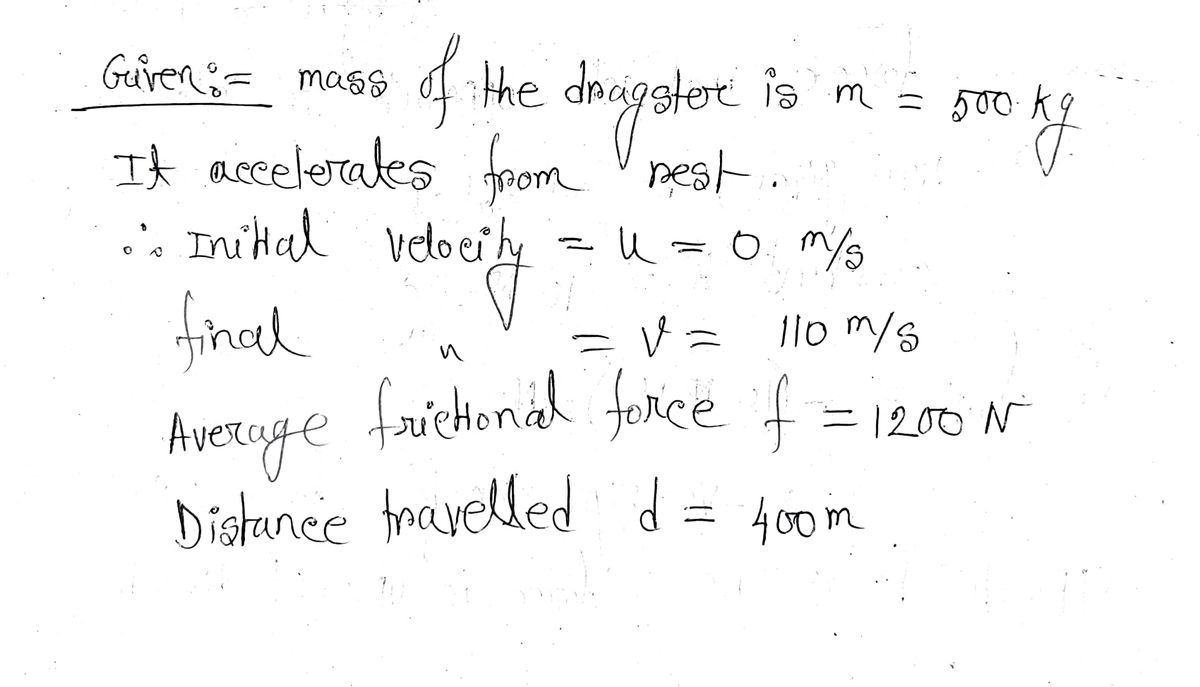 Given:= mass of the dragster is m = 500 kg
It accelerates from rest.
∴ Initial velocity = u = 0 m/s
final " = v = 110 m/s
Average frictional force f = 1200 N
Distance travelled d = 400m